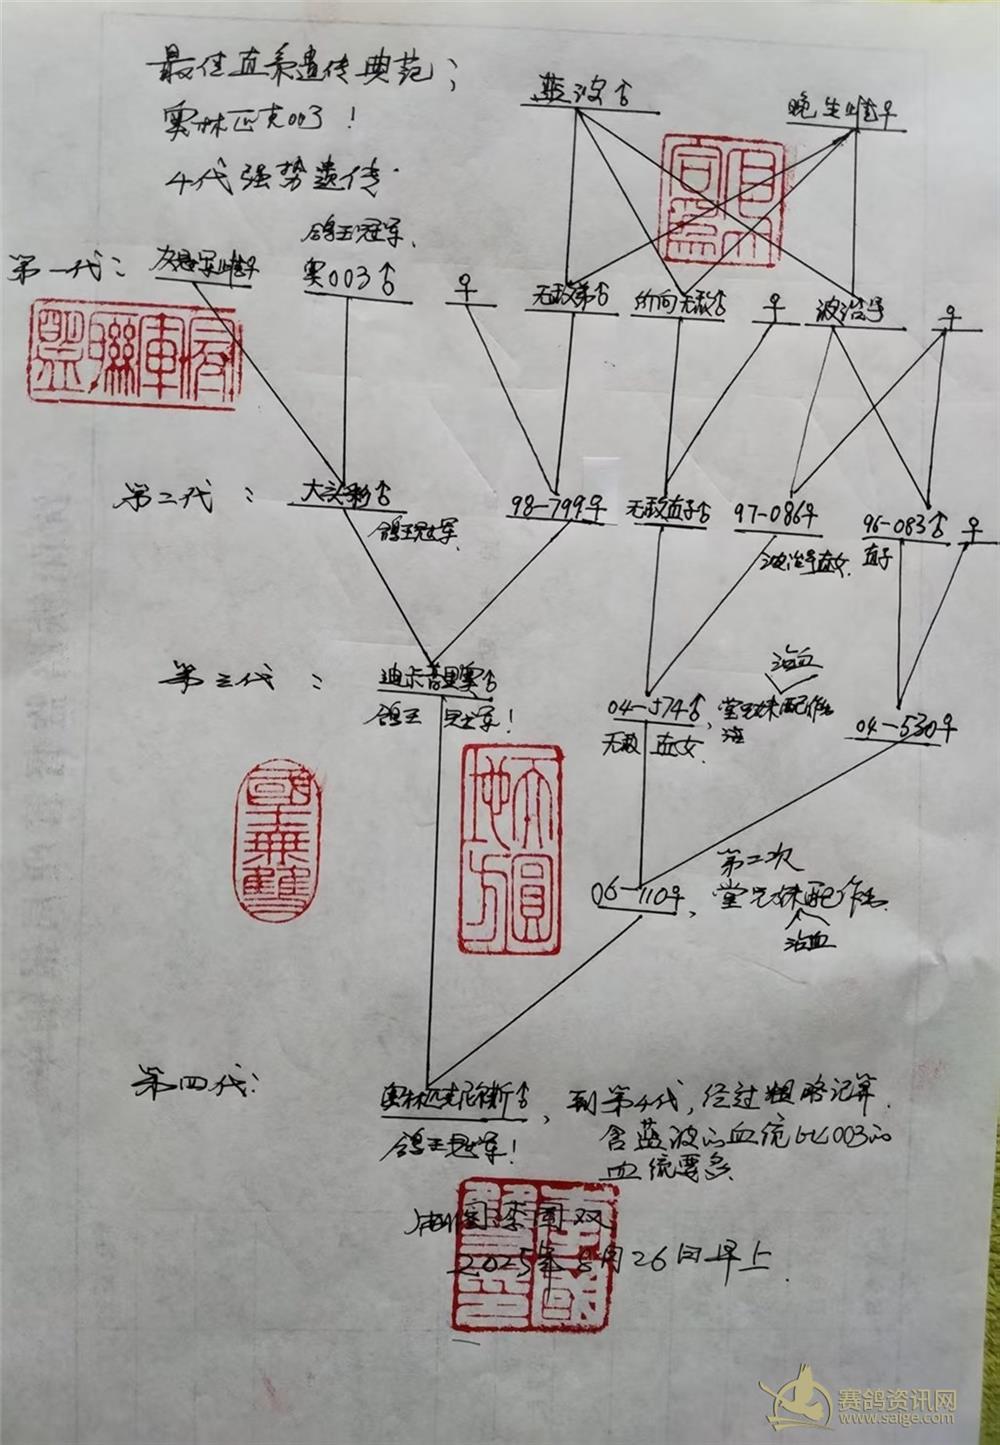 最佳直系遗传典范；
奥林匹克003！
4代强势遗传．
蓝波♂
晚生雌♀
鸽王冠军．
第一代：
奥003♂
♀
无敌弟♂
价向无敌♂
♀
波治号
♀
第二代：
大头彩♂
鸽王冠军．
98-799♀
无敌直子♂
97-086♀
波治号直女．
96-083♂
直子
♀
第三代：
迪卡普里奥♂
鸽王冠军！
04-574♂，堂兄妹配作出
无敌 直女．
浓血
04-530♀
06-110♀，
第二次
堂兄妹配作出．
浓血
第四代：
奥林匹克尼德斯♂
鸽王冠军！
，到第4代，经过粗略记算．
含蓝波的血统比003的
血统要多
李国双
2025年8月26日早上．
國士無雙
天圓地方
赛鸽资讯网
www.saige.com